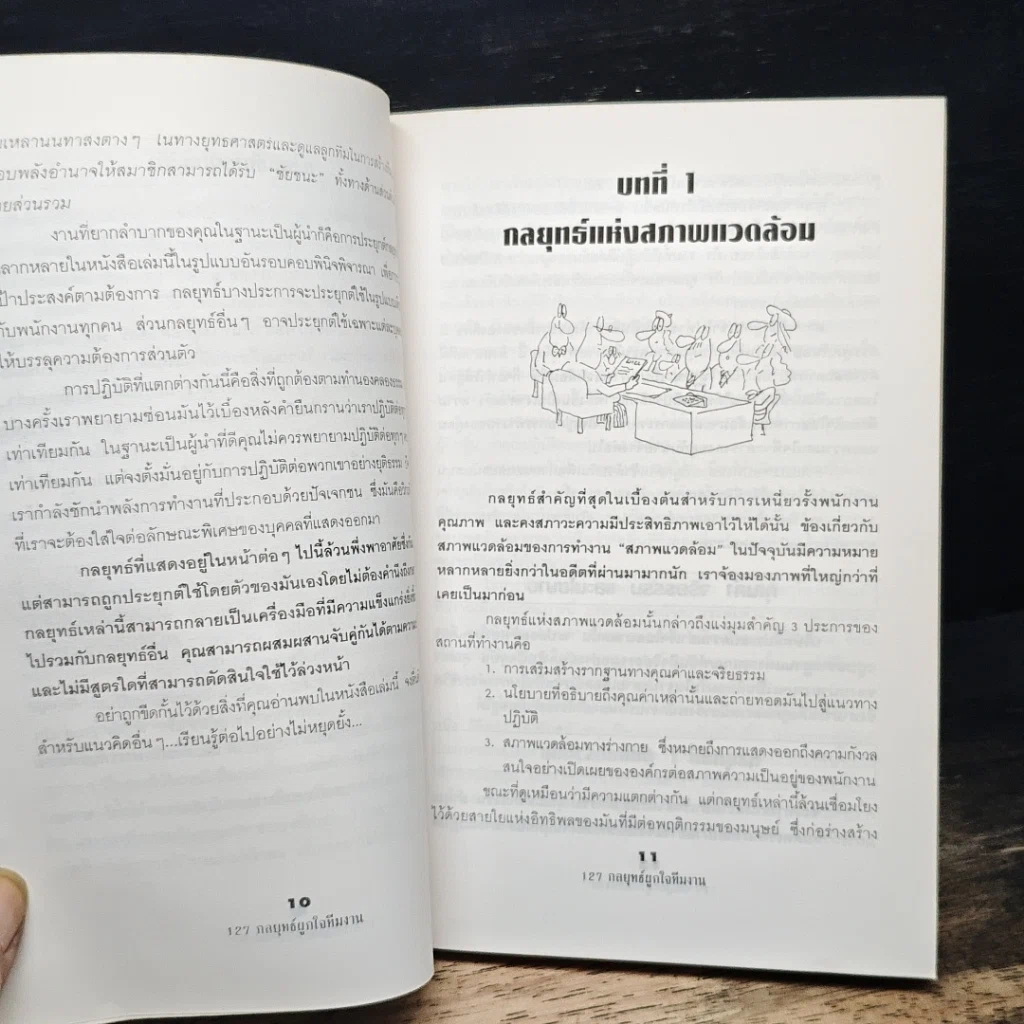 เหล่านนทาสงต่างๆ ในทางยุทธศาสตร์และดูแลลูกทีมในการสร้าง
อบพลังอำนาจให้สมาชิกสามารถได้รับ “ชัยชนะ” ทั้งทางด้านส่วนตัว
ยส่วนรวม
งานที่ยากลำบากของคุณในฐานะเป็นผู้นำก็คือการประยุกต์
ลากหลายในหนังสือเล่มนี้ในรูปแบบอันรอบคอบพินิจพิจารณา
ป้าประสงค์ตามต้องการ กลยุทธ์บางประการจะประยุกต์ใช้ในรูปแบบ
กับพนักงานทุกคน ส่วนกลยุทธ์อื่นๆ อาจประยุกต์ใช้เฉพาะแต่ละ
ให้บรรลุความต้องการส่วนตัว
การปฏิบัติที่แตกต่างกันนี้คือสิ่งที่ถูกต้องตามทำนองคลอง
บางครั้งเราพยายามซ่อนมันไว้เบื้องหลังคำยืนกรานว่าเราปฏิบัติต่อ
เท่าเทียมกัน ในฐานะเป็นผู้นำที่ดีคุณไม่ควรพยายามปฏิบัติต่อทุกๆ
เท่าเทียมกัน แต่จงตั้งมั่นอยู่กับการปฏิบัติต่อพวกเขาอย่างยุติธรรม
เรากำลังชักนำพลังการทำงานที่ประกอบด้วยปัจเจกชน ซึ่งมันคือ
ที่เราจะต้องใส่ใจต่อลักษณะพิเศษของบุคคลที่แสดงออกมา
กลยุทธ์ที่แสดงอยู่ในหน้าต่อๆ ไปนี้ล้วนพึ่งพาอาศัยซึ่งกัน
แต่สามารถถูกประยุกต์ใช้โดยตัวของมันเองโดยไม่ต้องคำนึงถึง
กลยุทธ์เหล่านี้สามารถกลายเป็นเครื่องมือที่มีความแข็งแกร่ง
ไปรวมกับกลยุทธ์อื่น คุณสามารถผสมผสานจับคู่กันได้ตามความ
และไม่มีสูตรใดที่สามารถตัดสินใจใช้ไว้ล่วงหน้า
อย่าถูกขีดกั้นไว้ด้วยสิ่งที่คุณอ่านพบในหนังสือเล่มนี้
สำหรับแนวคิดอื่นๆ...เรียนรู้ต่อไปอย่างไม่หยุดยั้ง...
10
127 กลยุทธ์ผูกใจทีมงาน
บทที่ 1
กลยุทธ์แห่งสภาพแวดล้อม
กลยุทธ์สำคัญที่สุดในเบื้องต้นสำหรับการเหนี่ยวรั้งพนักงาน
คุณภาพ และคงสภาวะความมีประสิทธิภาพเอาไว้ให้ได้นั้น ข้องเกี่ยวกับ
สภาพแวดล้อมของการทำงาน “สภาพแวดล้อม” ในปัจจุบันมีความหมาย
หลากหลายยิ่งกว่าในอดีตที่ผ่านมามากนัก เราจ้องมองภาพที่ใหญ่กว่าที่
เคยเป็นมาก่อน
กลยุทธ์แห่งสภาพแวดล้อมนั้นกล่าวถึงแง่มุมสำคัญ 3 ประการของ
สถานที่ทำงานคือ
1. การเสริมสร้างรากฐานทางคุณค่าและจริยธรรม
2. นโยบายที่อธิบายถึงคุณค่าเหล่านั้นและถ่ายทอดมันไปสู่แนวทาง
ปฏิบัติ
3. สภาพแวดล้อมทางร่างกาย ซึ่งหมายถึงการแสดงออกถึงความกังวล
สนใจอย่างเปิดเผยขององค์กรต่อสภาพความเป็นอยู่ของพนักงาน
ขณะที่ดูเหมือนว่ามีความแตกต่างกัน แต่กลยุทธ์เหล่านี้ล้วนเชื่อมโยง
ไว้ด้วยสายใยแห่งอิทธิพลของมันที่มีต่อพฤติกรรมของมนุษย์ ซึ่งก่อร่างสร้าง
11
127 กลยุทธ์ผูกใจทีมงาน